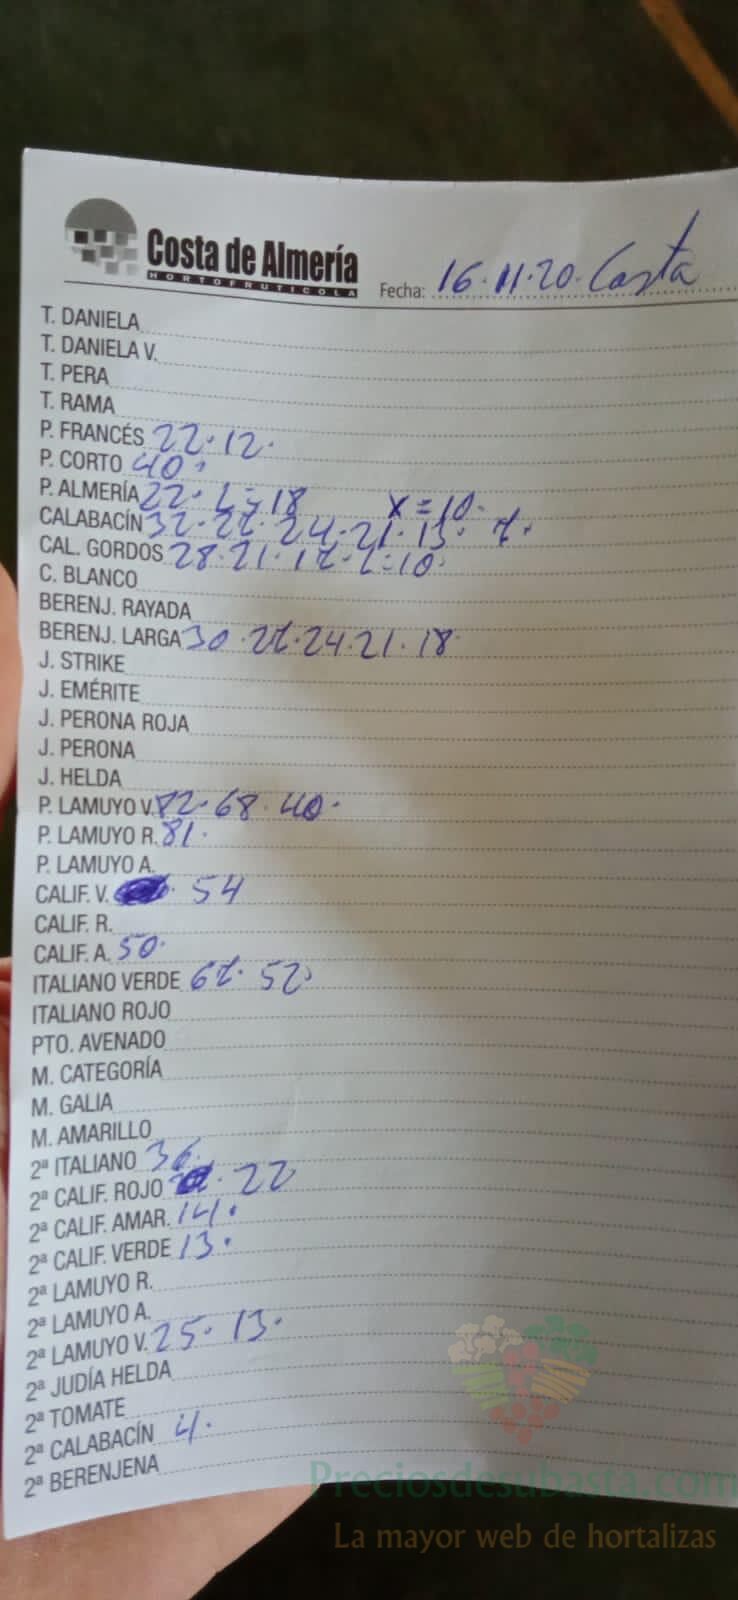 Costa de Almería
HORTOFRUTICOLA
Fecha: 16.11.20. Costa
T. DANIELA
T. DANIELA V.
T. PERA
T. RAMA
P. FRANCÉS 22. 12.
P. CORTO 40.
P. ALMERÍA 22. L = 18 X = 10.
CALABACÍN 32. 27. 24. 21. 15. 7.
CAL. GORDOS 28. 21. 17. L = 10.
C. BLANCO
BERENJ. RAYADA
BERENJ. LARGA 30. 27. 24. 21. 18
J. STRIKE
J. EMÉRITE
J. PERONA ROJA
J. PERONA
J. HELDA
P. LAMUYO V. 82. 68. 40.
P. LAMUYO R. 81.
P. LAMUYO A.
CALIF. V. 54
CALIF. R.
CALIF. A. 50.
ITALIANO VERDE 67. 52.
ITALIANO ROJO
PTO. AVENADO
M. CATEGORÍA
M. GALIA
M. AMARILLO
2ª ITALIANO 36.
2ª CALIF. ROJO 22
2ª CALIF. AMAR. 14.
2ª CALIF. VERDE 13.
2ª LAMUYO R.
2ª LAMUYO A.
2ª LAMUYO V. 25. 13.
2ª JUDÍA HELDA
2ª TOMATE
2ª CALABACÍN 4.
2ª BERENJENA
Preciosdesubasta.com
La mayor web de hortalizas